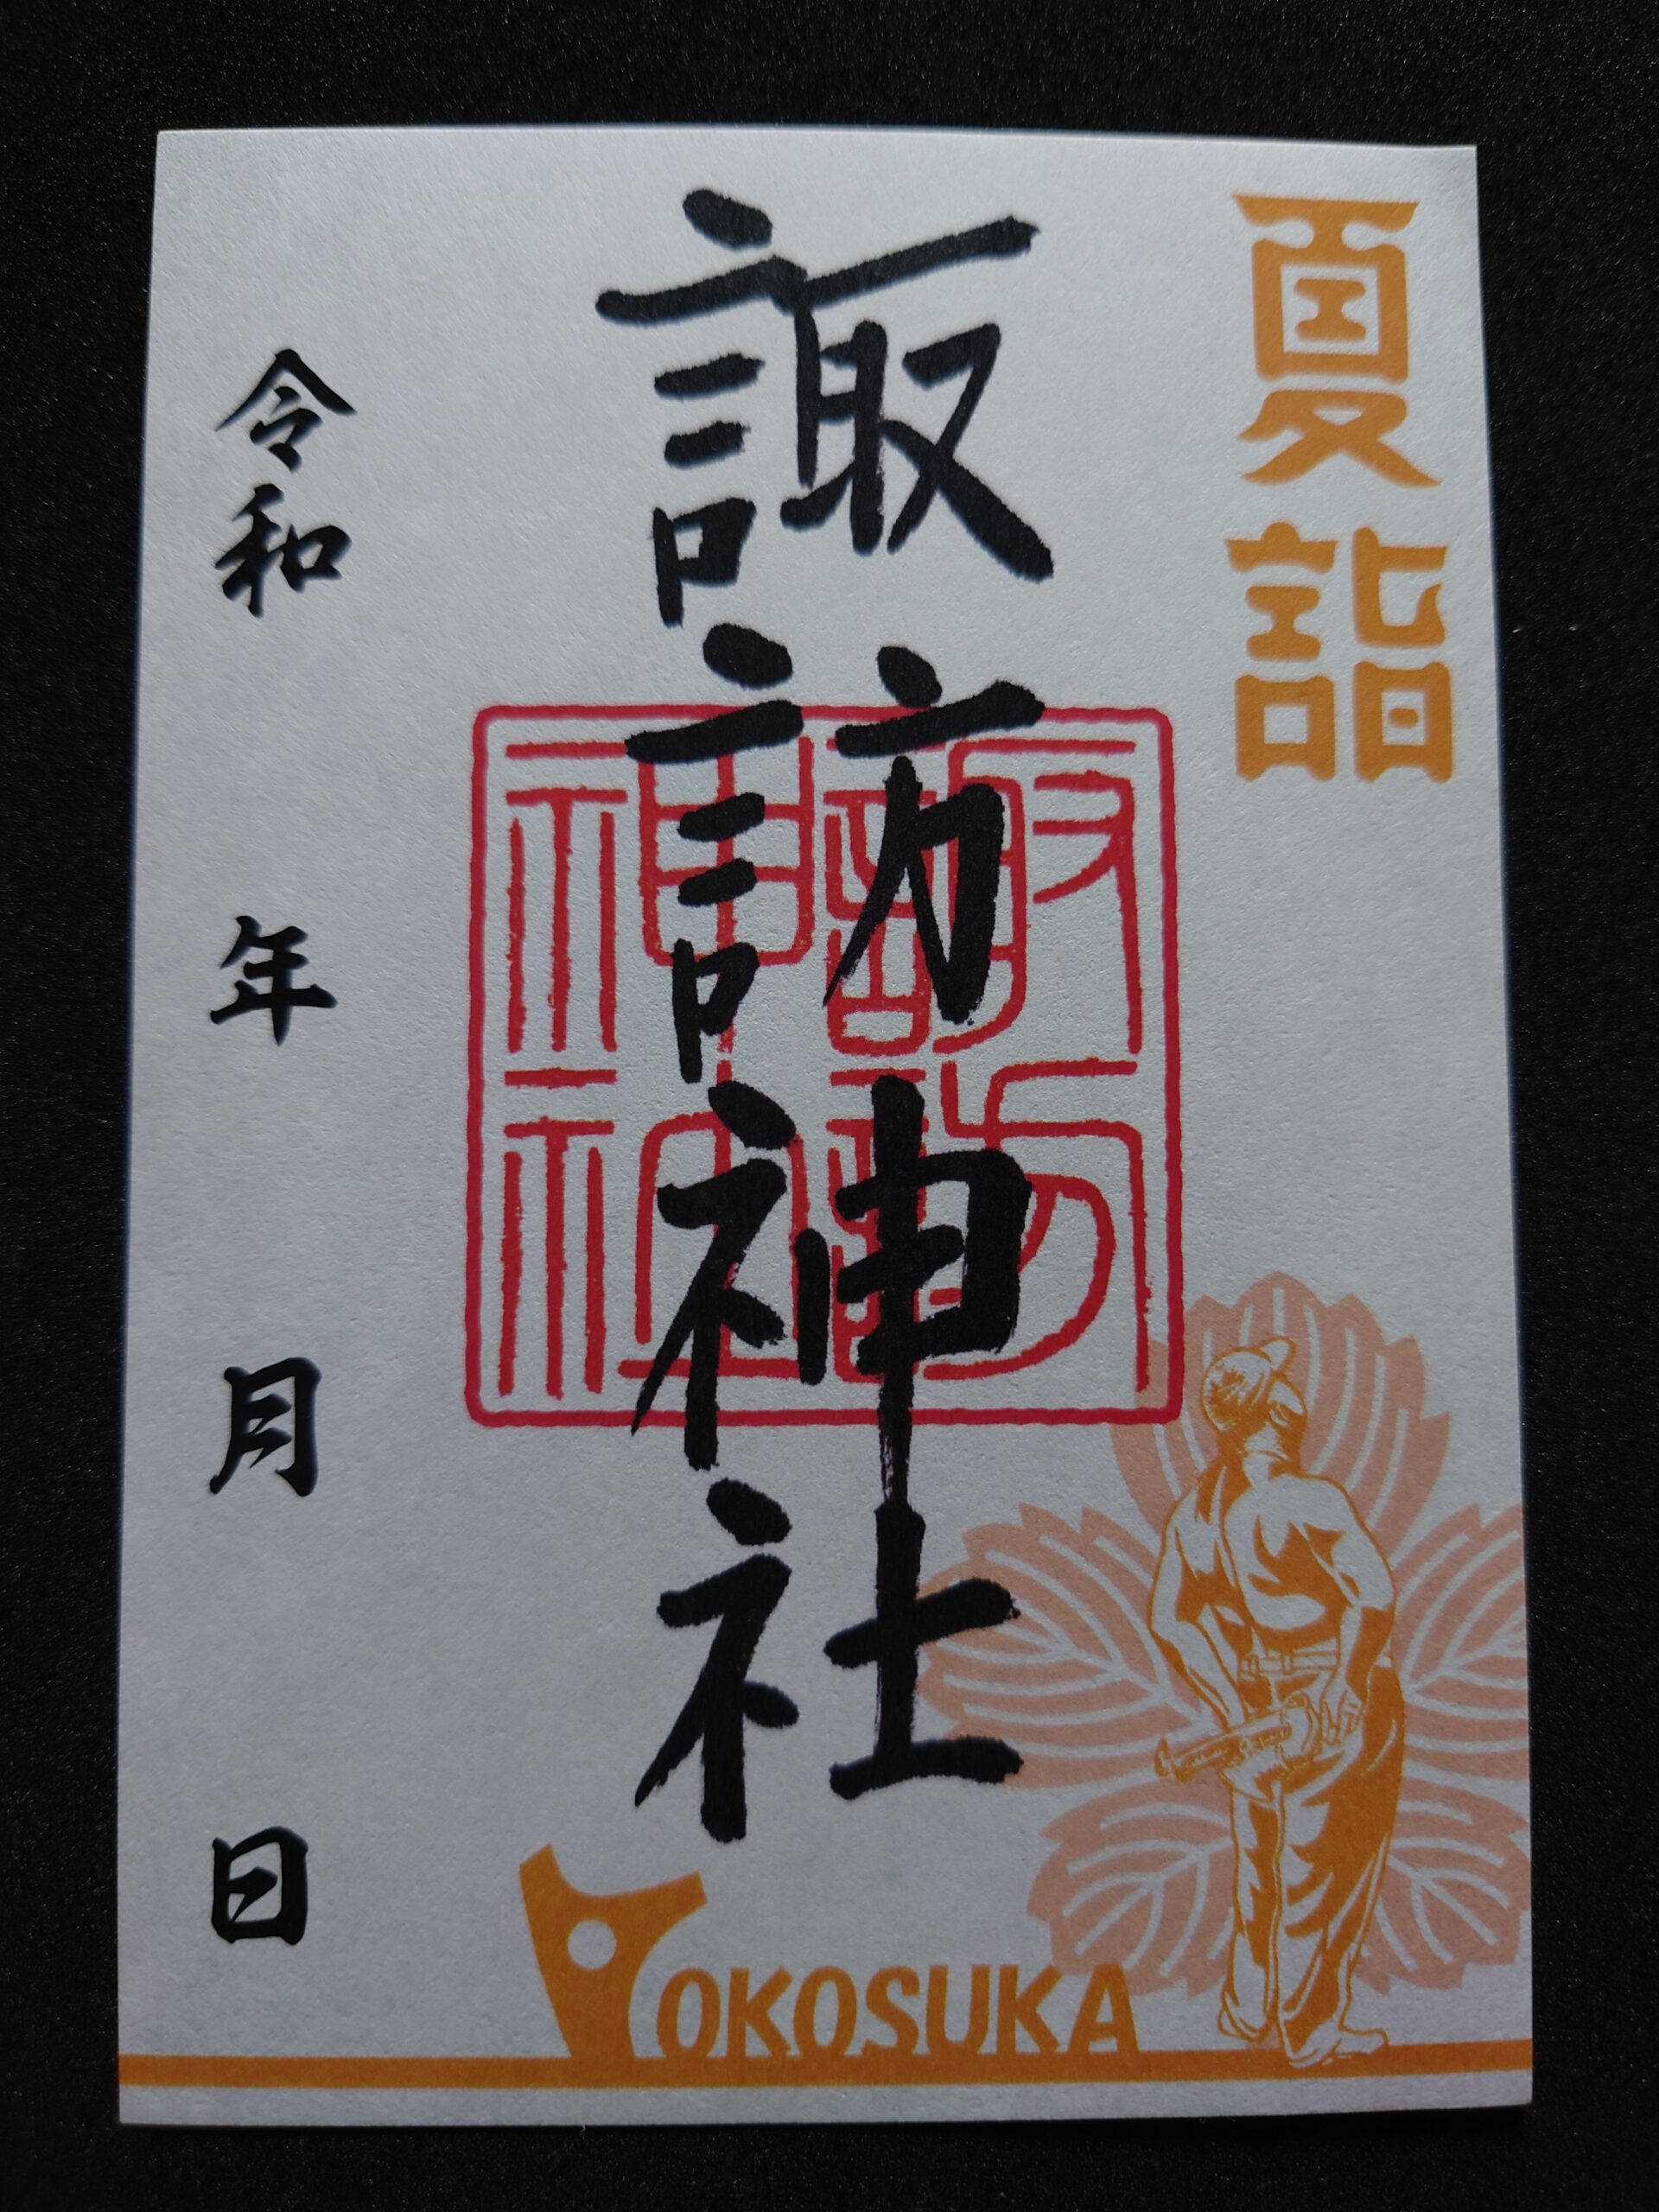 夏詣
諏訪神社
諏訪
神社
令和 年 月 日
YOKOSUKA